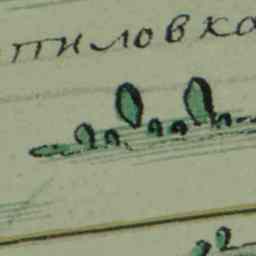 пиловка